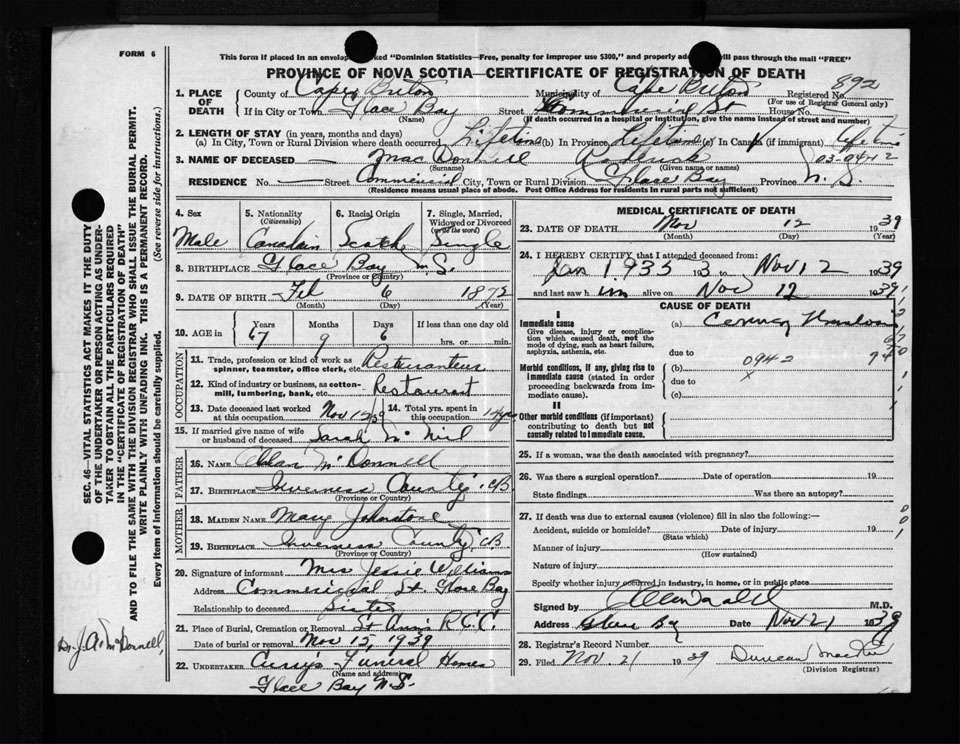 FORM 6
This form if placed in an envelope marked "Dominion Statistics—Free, penalty for improper use $300," and properly addressed will pass through the mail "FREE"
PROVINCE OF NOVA SCOTIA—CERTIFICATE OF REGISTRATION OF DEATH
892
1. PLACE OF DEATH County of Cape Breton Municipality of Cape Breton Registered No.
(For use of Registrar General only)
If in City or Town Glace Bay Street Commercial St House No.
(Name) (If death occurred in a hospital or institution, give the name instead of street and number)
2. LENGTH OF STAY (in years, months and days)
(a) In City, Town or Rural Division where death occurred Lifetime (b) In Province Lifetime (c) In Canada (if immigrant) Lifetime
03-0942
3. NAME OF DECEASED — MacDonnell Roderick
(Surname) (Given name or names)
RESIDENCE No. — Street Commercial City, Town or Rural Division Glace Bay Province N. S.
(Residence means usual place of abode. Post Office Address for residents in rural parts not sufficient)
4. Sex Male
5. Nationality (Citizenship) Canadian
6. Racial Origin Scotch
7. Single, Married, Widowed or Divorced (write the word) Single
8. BIRTHPLACE Glace Bay N.S.
(Province or Country)
9. DATE OF BIRTH Feb 6 1872
(Month) (Day) (Year)
10. AGE in Years Months Days If less than one day old
67 9 6 hrs. or min.
OCCUPATION
11. Trade, profession or kind of work as spinner, teamster, office clerk, etc.
12. Kind of industry or business, as cotton-mill, lumbering, bank, etc. Restaurant
13. Date deceased last worked at this occupation Nov 12/39
14. Total yrs. spent in this occupation
15. If married give name of wife or husband of deceased Sarah McNeil
FATHER
16. NAME Allan McDonnell
17. BIRTHPLACE Inverness County, C.B
(Province or Country)
MOTHER
18. MAIDEN NAME Mary Johnstone
19. BIRTHPLACE Inverness County, C.B
(Province or Country)
20. Signature of informant Mrs Jessie Williams
Address Commercial St. Glace Bay
Relationship to deceased Sister
21. Place of Burial, Cremation or Removal St Anns R.C.C.
Date of burial or removal Nov 15, 1939
22. UNDERTAKER Curry's Funeral Homes
(Name and address)
Glace Bay N.S.
MEDICAL CERTIFICATE OF DEATH
23. DATE OF DEATH Nov 12 1939
(Month) (Day) (Year)
24. I HEREBY CERTIFY that I attended deceased from:
Jan 1935 193 to Nov 12 1939
and last saw him alive on Nov 12 1939
CAUSE OF DEATH
I
Immediate cause (a)
Give disease, injury or complication which caused death, not the mode of dying, such as heart failure, asphyxia, asthenia, etc.
due to
0942
Morbid conditions, if any, giving rise to immediate cause (stated in order proceeding backwards from immediate cause). (b)
due to
x
(c)
II
Other morbid conditions (if important) contributing to death but not causally related to immediate cause.
25. If a woman, was the death associated with pregnancy?
26. Was there a surgical operation? Date of operation 19
State findings Was there an autopsy?
27. If death was due to external causes (violence) fill in also the following:—
Accident, suicide or homicide? Date of injury 19
(State which)
Manner of injury
(How sustained)
Nature of injury
Specify whether injury occurred in industry, in home, or in public place
Signed by M.D.
Address Glace Bay Date Nov 21 1939
28. Registrar's Record Number
29. Filed Nov. 21 1939 Duncan
(Division Registrar)
SEC. 46—VITAL STATISTICS ACT MAKES IT THE DUTY
OF THE UNDERTAKER OR PERSON ACTING AS UNDER-
TAKER TO OBTAIN ALL THE PARTICULARS REQUIRED
IN THE "CERTIFICATE OF REGISTRATION OF DEATH"
AND TO FILE THE SAME WITH THE DIVISION REGISTRAR WHO SHALL ISSUE THE BURIAL PERMIT.
WRITE PLAINLY WITH UNFADING INK. THIS IS A PERMANENT RECORD.
Every item of information should be carefully supplied. (See reverse side for instructions.)
Dr. J.A. McDonnell,